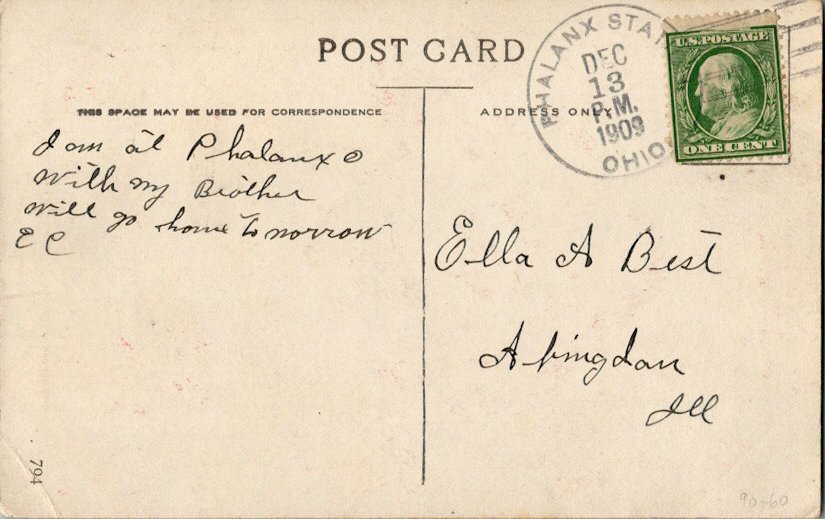 POST CARD
THIS SPACE MAY BE USED FOR CORRESPONDENCE
I am at Phalanx O
with my Brother
will go home tomorrow
E C
ADDRESS ONLY
PHALANX STAT
DEC
13
P.M.
1909
OHIO
U.S. POSTAGE
ONE CENT
Ella A Best
Abingdon
Ill
794
90-60